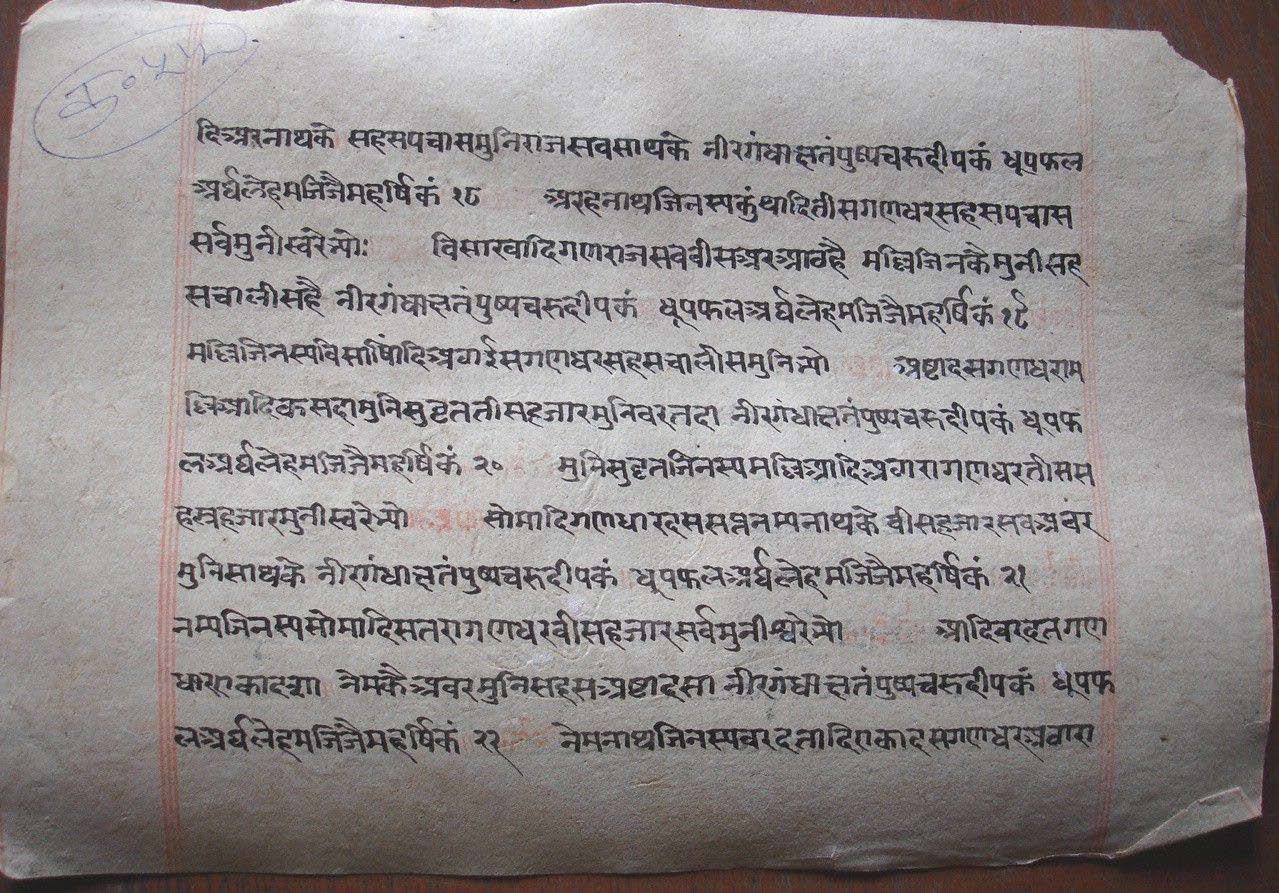 क॰ ५५
दिअरनाथके सहसपचासमुनिराजसवसाथके नीरगंधाक्षतंपुष्पचरुदीपकं धूपफल
अर्घलेहमजिजैमहर्षिकं १८ अरहनाथजिनस्यकुंथादितीसगणधरसहसपचास
सर्वमुनीस्वरेभ्यो: विसाखादिगणराजसबवीसअरआठहै मल्लिजिनकैमुनीसह
सचालीसहै नीरगंधाक्षतंपुष्पचरुदीपकं धूपफलअर्घलेहमजिजैमहर्षिकं १९
मल्लिजिनस्यविसाषादिअठाईसगणधरसहसचालीसमुनिभ्यो अष्टादसगणधराम
ल्लिआदिकसदामुनिसुवृततीसहजारमुनिवरतदा नीरगंधाक्षतंपुष्पचरुदीपकं धूपफ
लअर्घलेहमजिजैमहर्षिकं २० मुनिसुवृतजिनस्यमल्लिआदिअठारागणधरतीसस
हस्रहजारमुनीस्वरेभ्यो सोमादिगणधारहससप्तनम्यनाथके वीसहजारसवअवर
मुनिसाथके नीरगंधाक्षतंपुष्पचरुदीपकं धूपफलअर्घलेहमजिजैमहर्षिकं २१
नम्यजिनस्यसोमादिसतरागणधरवीसहजारसर्वमुनीश्वरेभ्यो आदिवरदतगण
धारएकादशा नेमकैअवरमुनिसहसअष्टादसा नीरगंधाक्षतंपुष्पचरुदीपकं धूपफ
लअर्घलेहमजिजैमहर्षिकं २२ नेमनाथजिनस्यवरदतादिएकादसगणधरअठारा